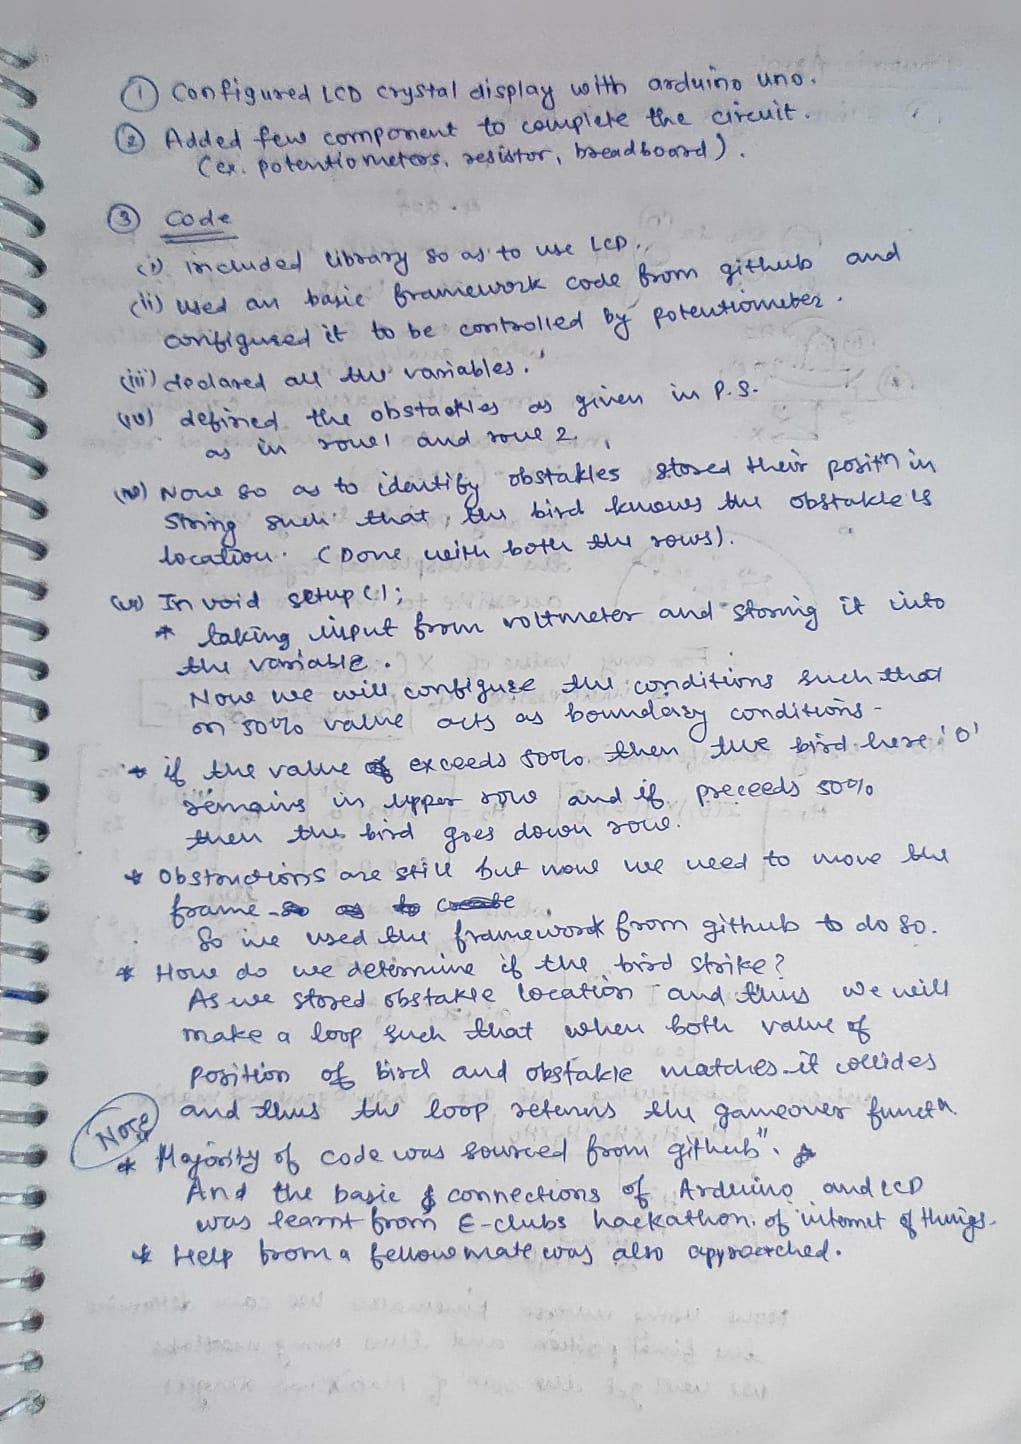 ① Configured LCD crystal display with arduino uno.
② Added few component to complete the circuit.
(ex. potentiometers, resistor, breadboard).
③ Code
(i) included library so as to use LCD.
(ii) used an basic framework code from github and
configured it to be controlled by potentiometer.
(iii) declared all the variables.
(iv) defined the obstackles as given in P.S.
as in row 1 and row 2.
(v) Now so as to identify obstakles stored their positn in
String such that, the bird knows the obstakle is
location. (Done with both the rows).
(vi) In void setup();
* taking input from voltmeter and storing it into
the variable.
Now we will configure the conditions such that
on 50% value acts as boundary conditions -
* if the value exceeds 50% then the bird here 'O'
remains in upper row and if preceeds 50%
then the bird goes down row.
* Obstructions are still but now we need to move the
frame so as to create.
So we used the framework from github to do so.
* How do we determine if the bird strike?
As we stored obstakle location and thus we will
make a loop such that when both value of
position of bird and obstakle matches it collides
and thus the loop returns the gameover functn.
Note
* Majority of code was sourced from github".
And the basic & connections of Arduino and LCD
was learnt from E-clubs hackathon of internet of things.
* Help from a fellow mate was also approached.